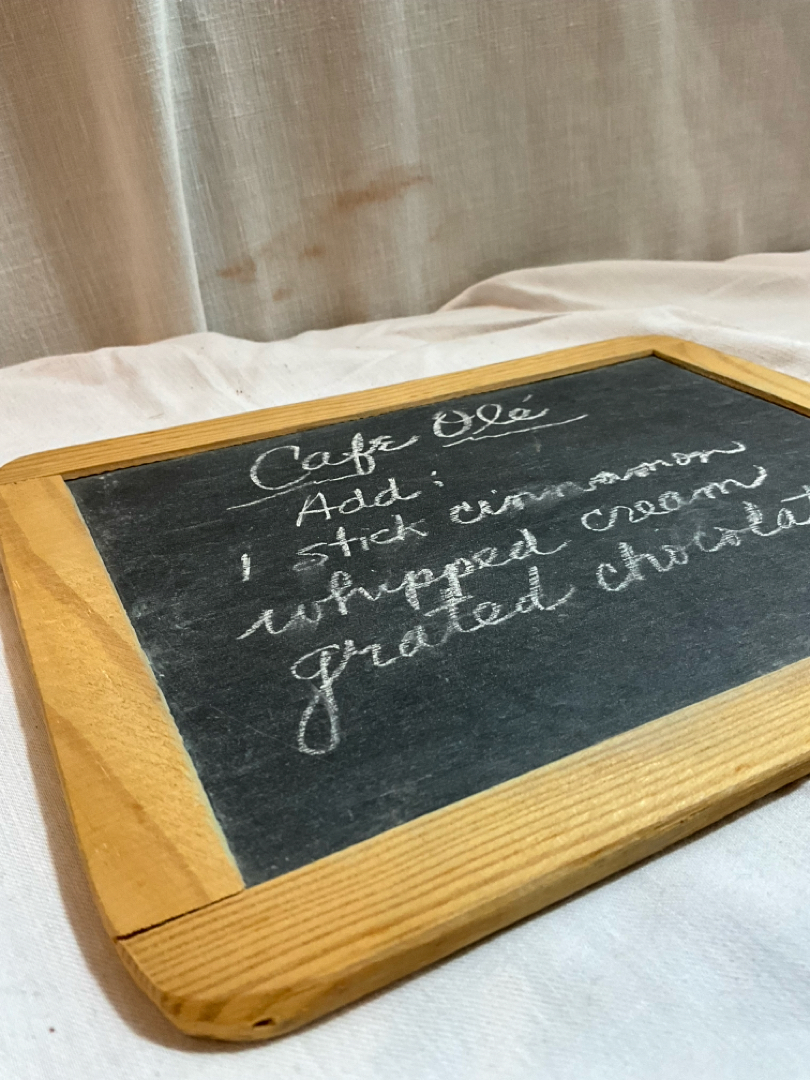 Cafe Olé
Add:
1 stick cinnamon
whipped cream
grated chocolat